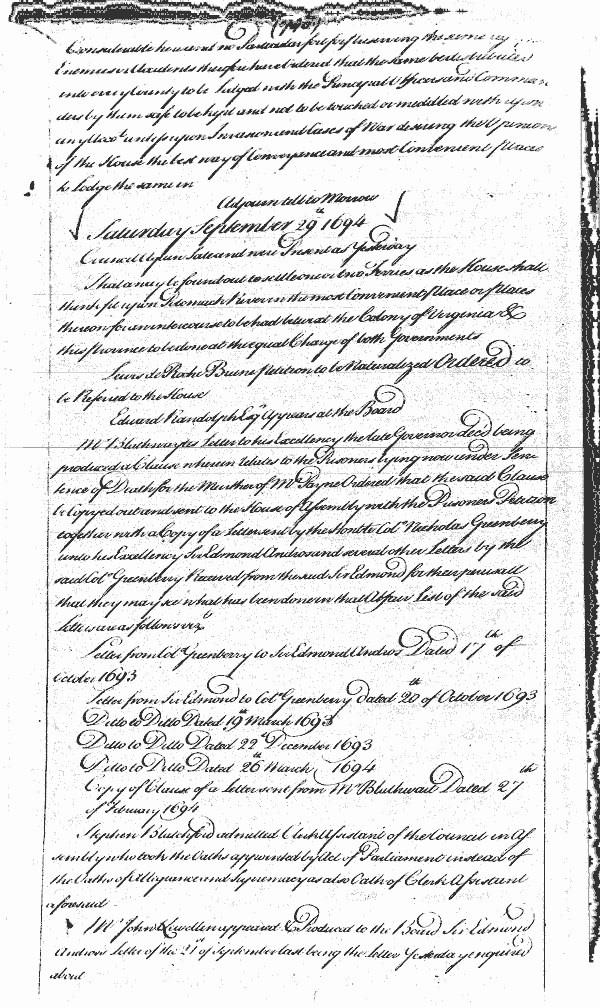 Considerable however no Particular for preserving the same
Enemies or Accidents therefore have Ordered that the same be distributed
into every County to be Lodged with the Principal Officers and Comman
ders by them safe to be kept and not to be touched or medled with upon
any Acco.t unless upon Invasion and Cases of War desiring the Opinion
of the House the best way of Conveyance and most Convenient places
to lodge the same in
Adjourn till to Morrow
Saturday September 29th 1694
Councill again Sate and were Present as Yesterday
That a way be found out to settle one or two Ferries as the House shall
think fit upon Potomack River in the most Convenient place or places
thereon for an intercourse to be had betwixt the Colony of Virginia &
this Province to be done at the equal Charge of both Governments
Lewis de Roche Brune Petition to be Naturalized Ordered to
be Referred to the House
Edward Randolph Esqr Appears at the Board
Mr Blathwaytes Letter to his Excellency the late Governor decd being
produced a Clause wherein relates to the Prisoners lying now under Sen
tence of Death for the Murther of Mr Payne Ordered that the said Clause
be Copyed out and sent to the House of Assembly with the Prisoners Petition
together with a Copy of a Letter sent by the Honble Colo Nicholas Greenberry
unto his Excellency Sir Edmond Andros and several other Letters by the
said Colo Greenberry Received from the said Sir Edmond for their perusall
that they may see what has been done in that Affair List of the said
Letters are as follows vizt
Letter from Colo Greenberry to Sir Edmond Andros Dated 17th of
October 1693
Letter from Sir Edmond to Colo Greenberry dated 20th of October 1693
Ditto to Ditto Dated 19th March 1693
Ditto to Ditto Dated 22d December 1693
Ditto to Ditto Dated 26th March 1694
Copy of Clause of a Letter sent from Mr Blathwait Dated 27th
of February 1694
Stephen Blatchford admitted Clerk Assistant of the Council in As
sembly who took the Oaths appointed by Act of Parliament instead of
the Oaths of Allegiance and Supremacy as also Oath of Clerk Assistant
aforesaid
Mr John Lewellen appeared & Produced to the Board Sir Edmond
Andros's Letter of the 21st of September last being the Letter Yesterday enquired
about